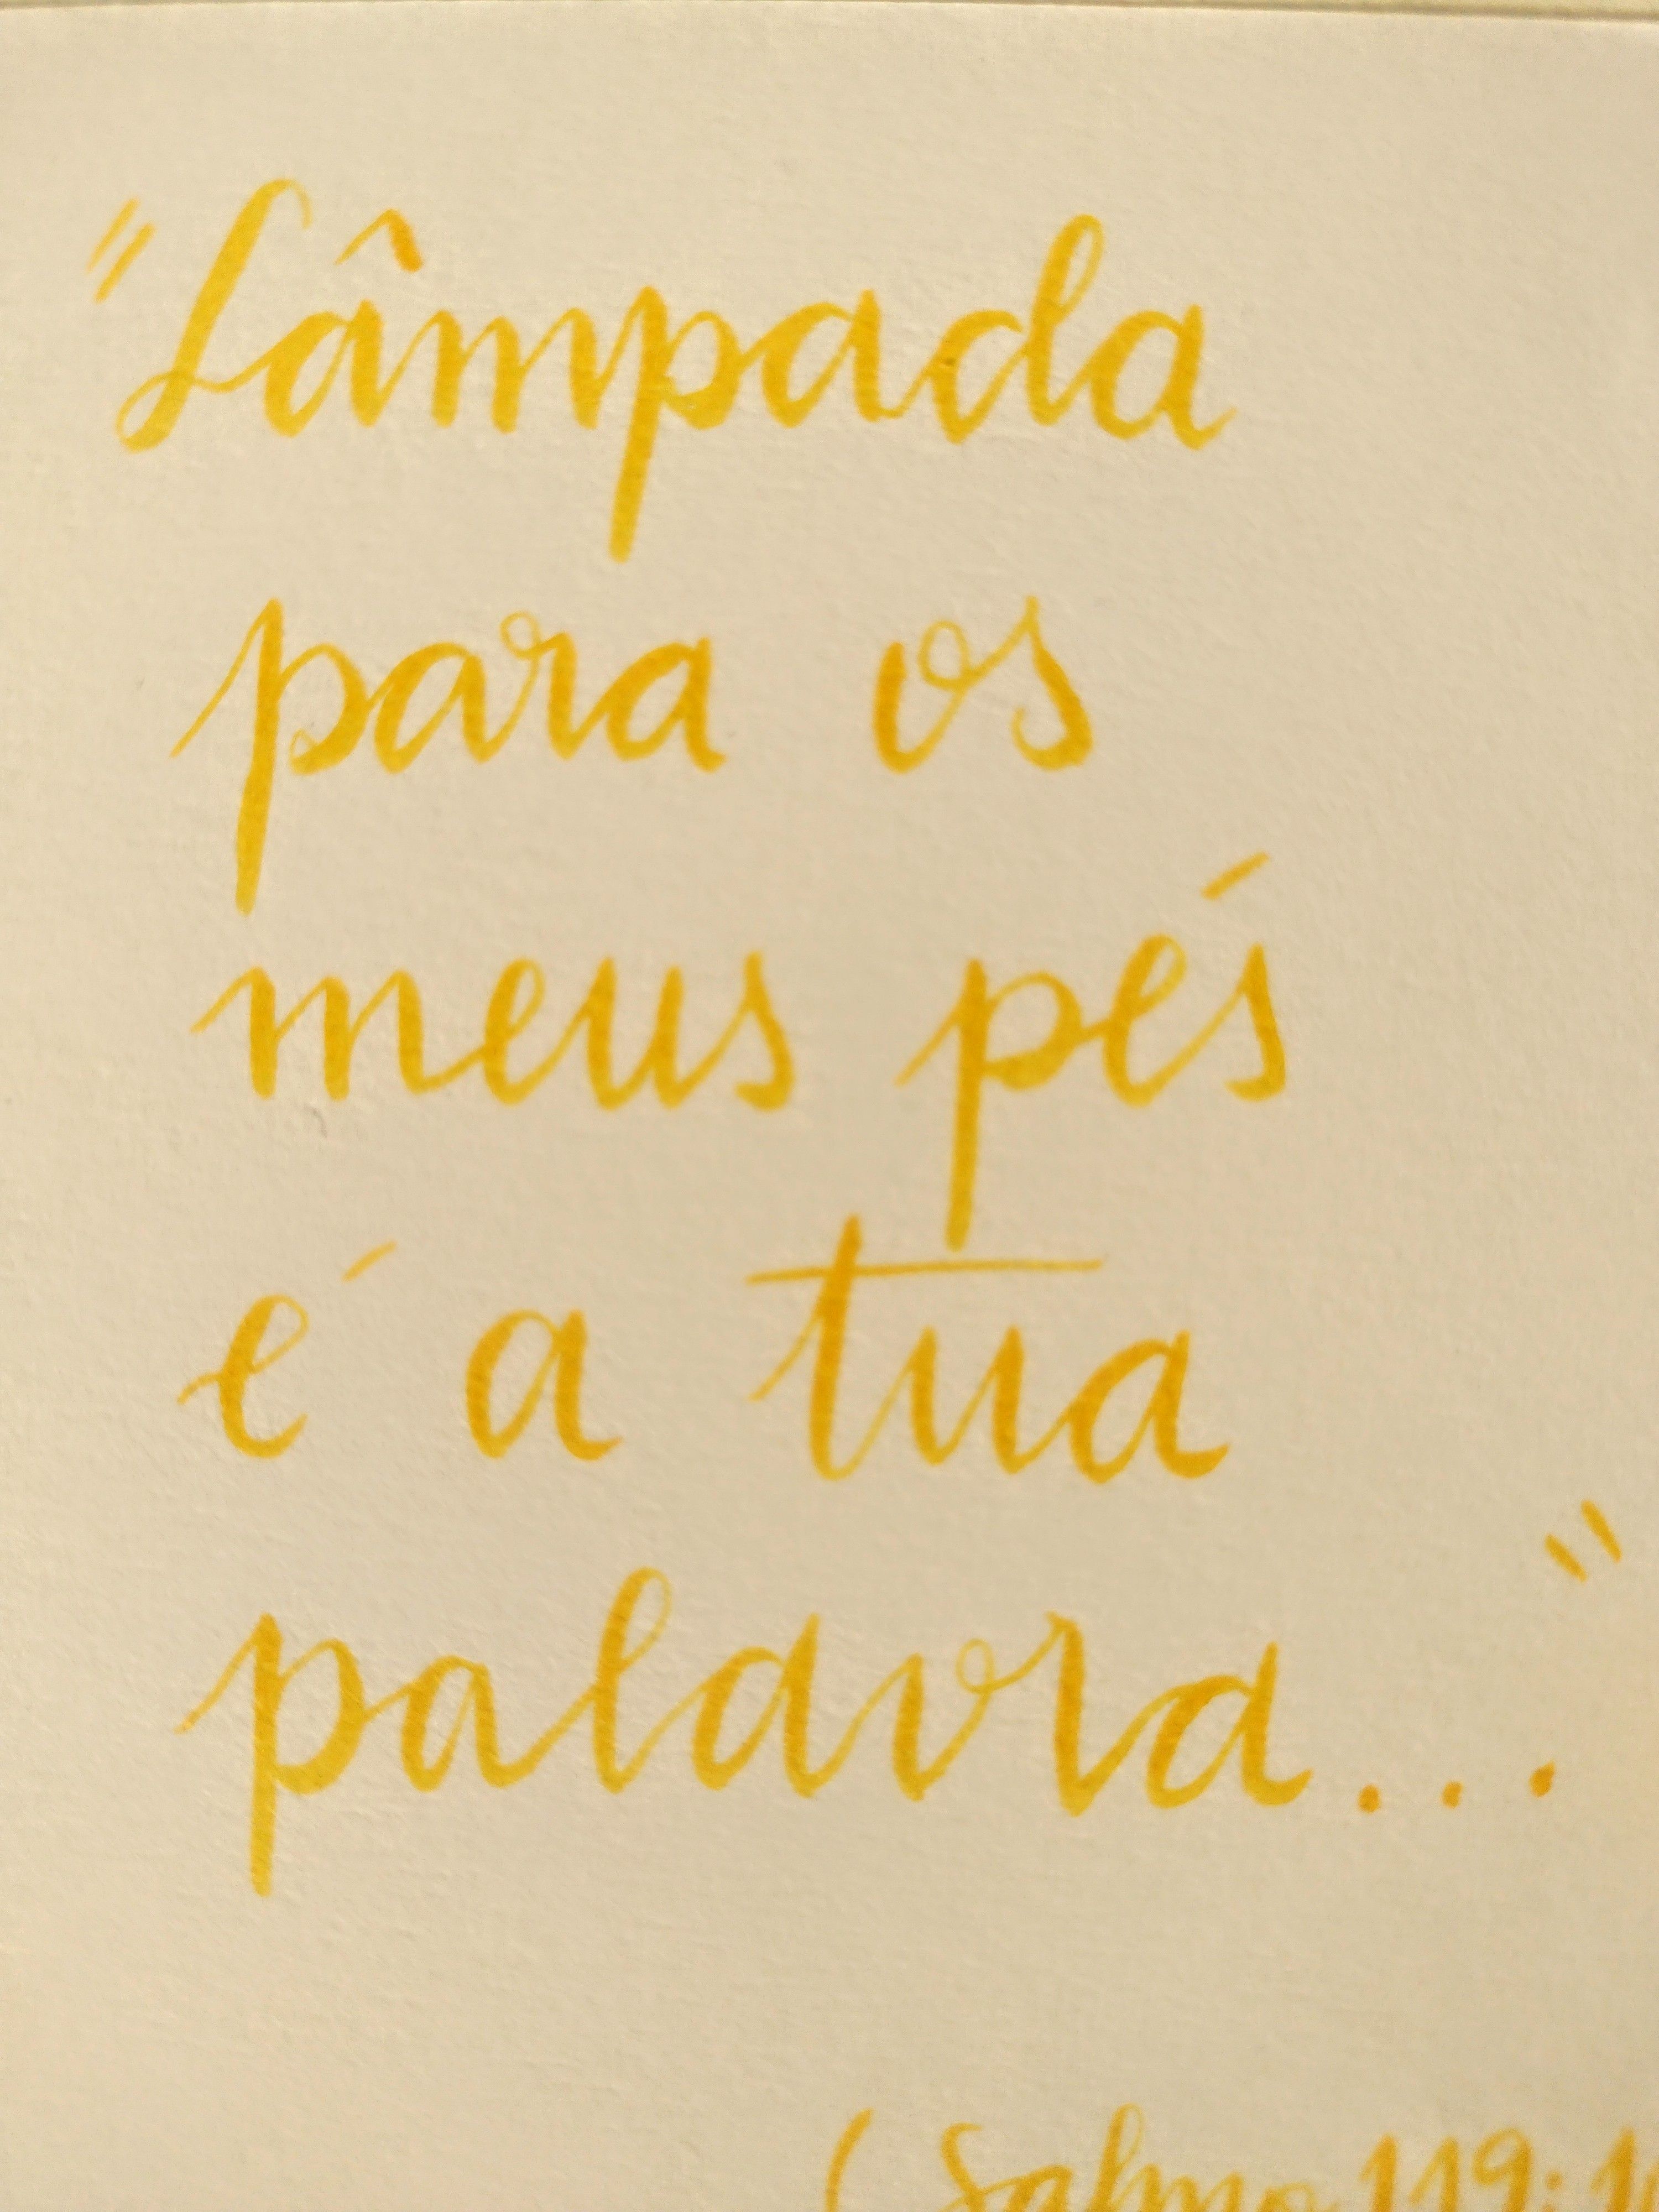 "Lâmpada
para os
meus pés
é a tua
palavra..."
(Salmo 119:1